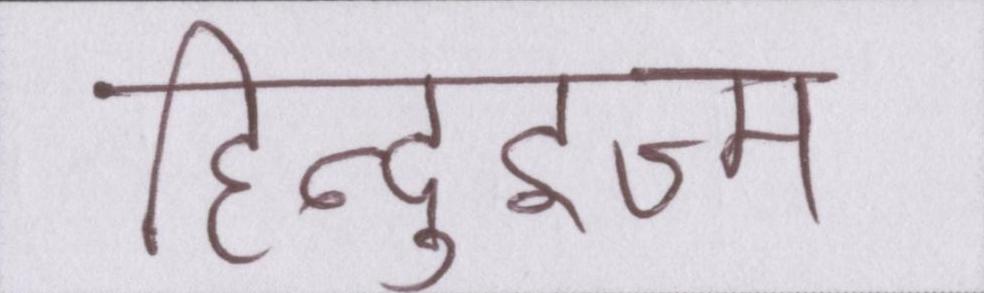 हिन्दुइज्म